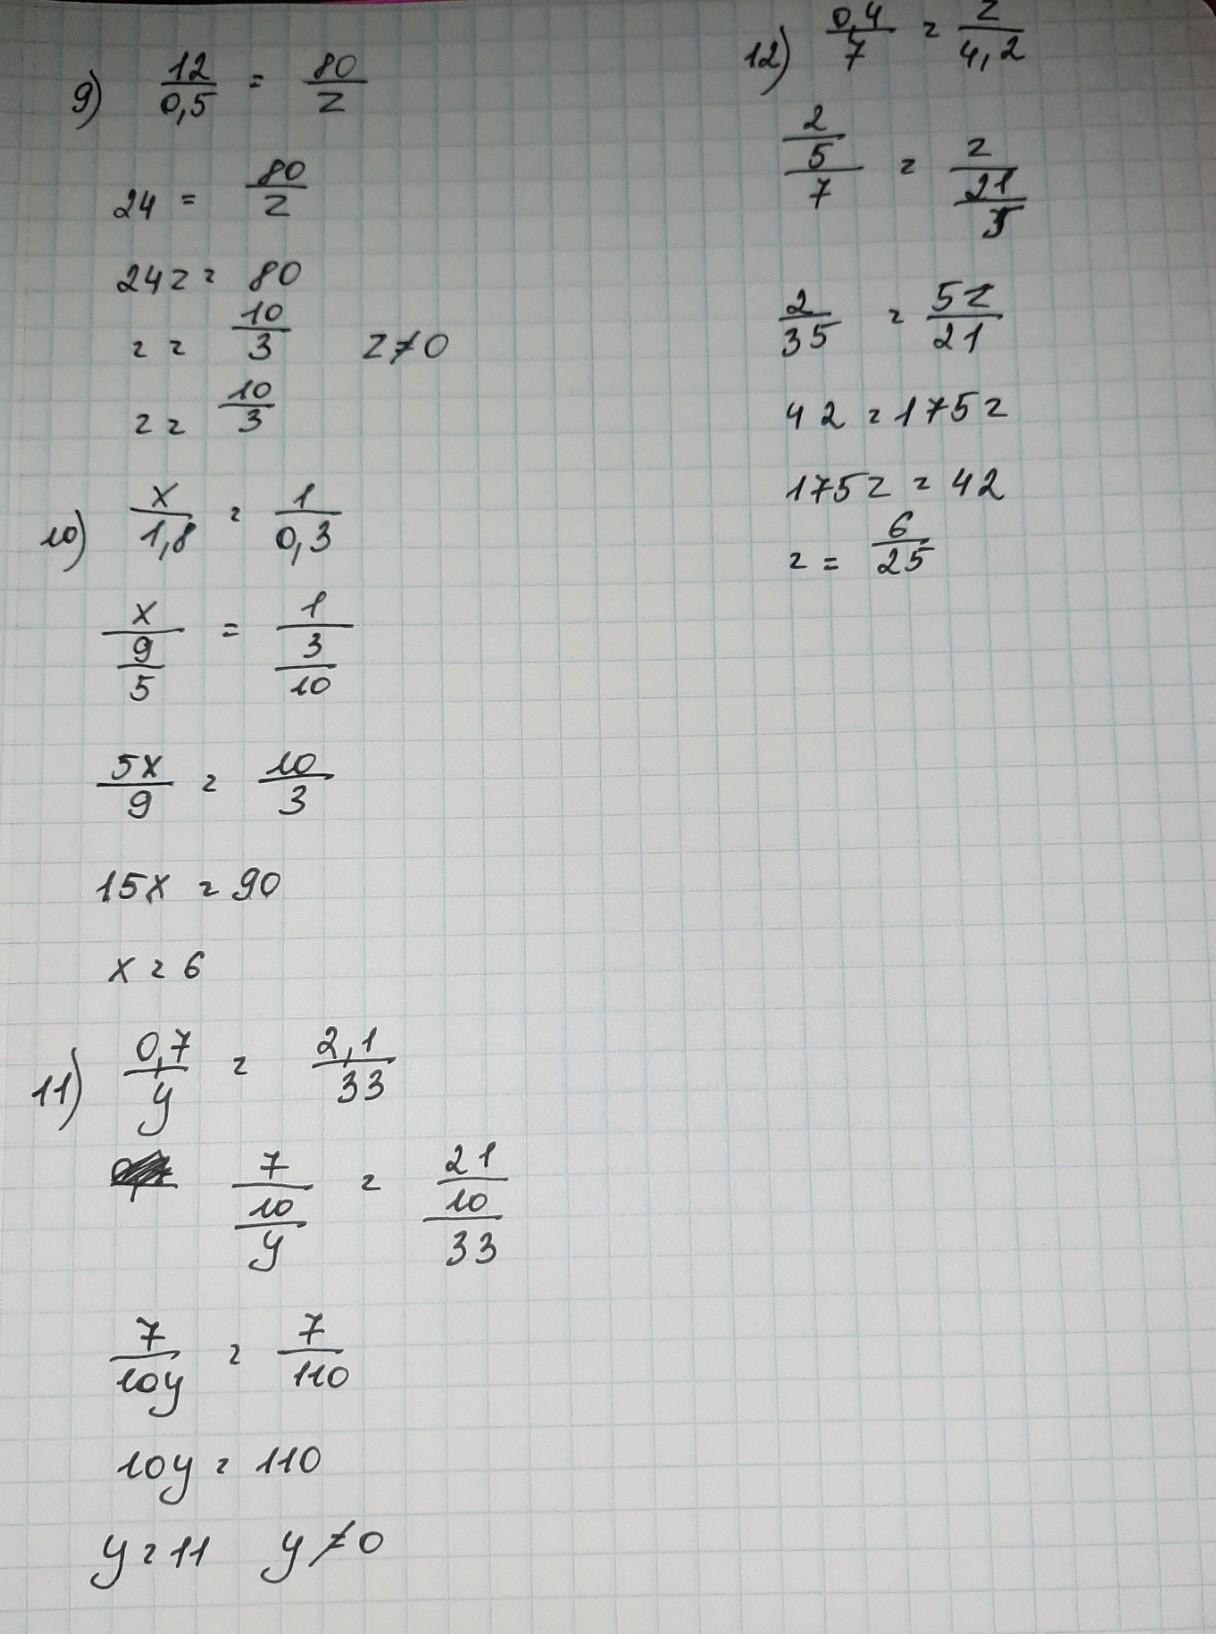 9) 12/0,5 = 80/z
24 = 80/z
24z = 80
z = 10/3 z≠0
z = 10/3
10) x/1,8 = 1/0,3
x/(9/5) = 1/(3/10)
5x/9 = 10/3
15x = 90
x = 6
11) 0,7/y = 2,1/33
7/10/y = 21/10/33
7/10y = 7/110
10y = 110
y = 11 y≠0
12) 0,4/7 = z/4,2
2/5/7 = z/(21/5)
2/35 = 5z/21
42 = 175z
175z = 42
z = 6/25